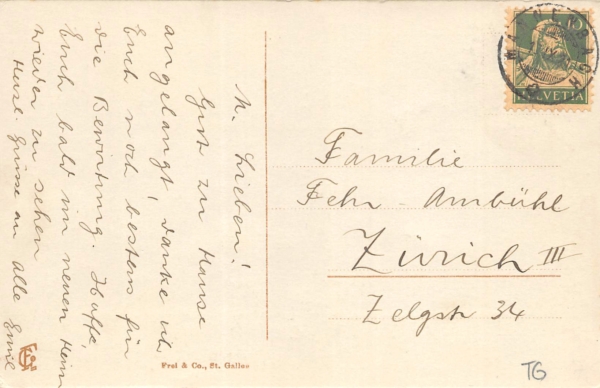 M. Lieben!
Gut zu Hause
angelangt, danke ich
Euch noch bestens für
die Bewirtung. Hoffe,
Euch bald im neuen Heim
wieder zu sehen
Herzl. Grüsse an alle Emil
Frei & Co., St. Gallen
10
HELVETIA
Familie
Fehr-Ambühl
Zürich III
Zelgstr 34
TG